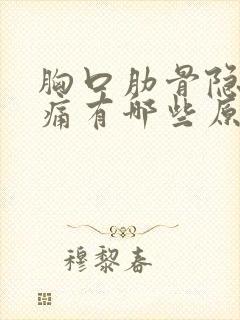 胸口肋骨隐
痛有哪些原
穆黎春